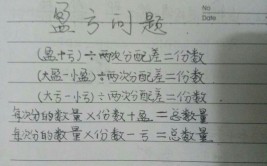 盈亏问题
No
Date
(盈+亏)÷两次分配差=份数
(大盈-小盈)÷两次分配差=份数
(大亏-小亏)÷两次分配差=份数
每次分的数量×份数+盈=总数量
每次分的数量×份数-亏=总数量